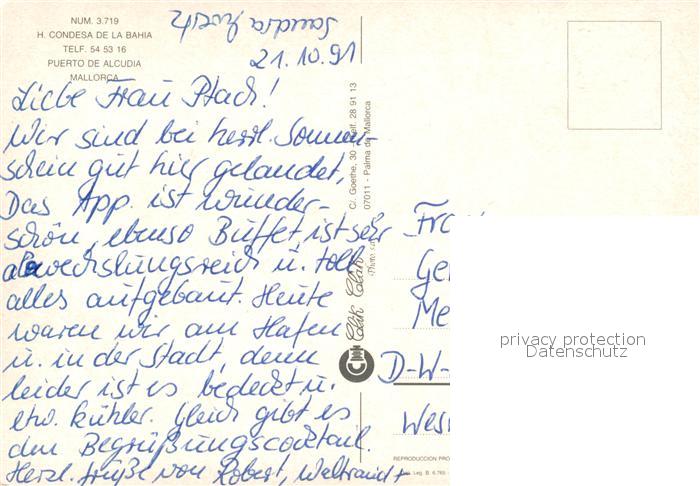 NUM. 3.719
H. CONDESA DE LA BAHIA
TELF. 54 53 16
PUERTO DE ALCUDIA
MALLORCA
Sandra
21.10.91
Liebe Frau Ptach!
Wir sind bei herrl. Sonnen-
schein gut hier gelandet.
Das App. ist wunder-
schön, ebenso Buffet, ist sehr
abwechslungsreich u. toll
alles aufgebaut. Heute
waren wir am Hafen
u. in der Stadt, denn
leider ist es bedeckt u.
etw. kühler. Gleich gibt es
den Begrüßungscocktail.
Herzl. Grüße von Robert, Waltraudt
C/. Goethe, 30 - Telf. 28 91 13
07011 - Palma de Mallorca
Clik Clak
Fra
Ge
Me
D-W-
Wes
REPRODUCCION PRO
Leg. B. 6.765
privacy protection
Datenschutz